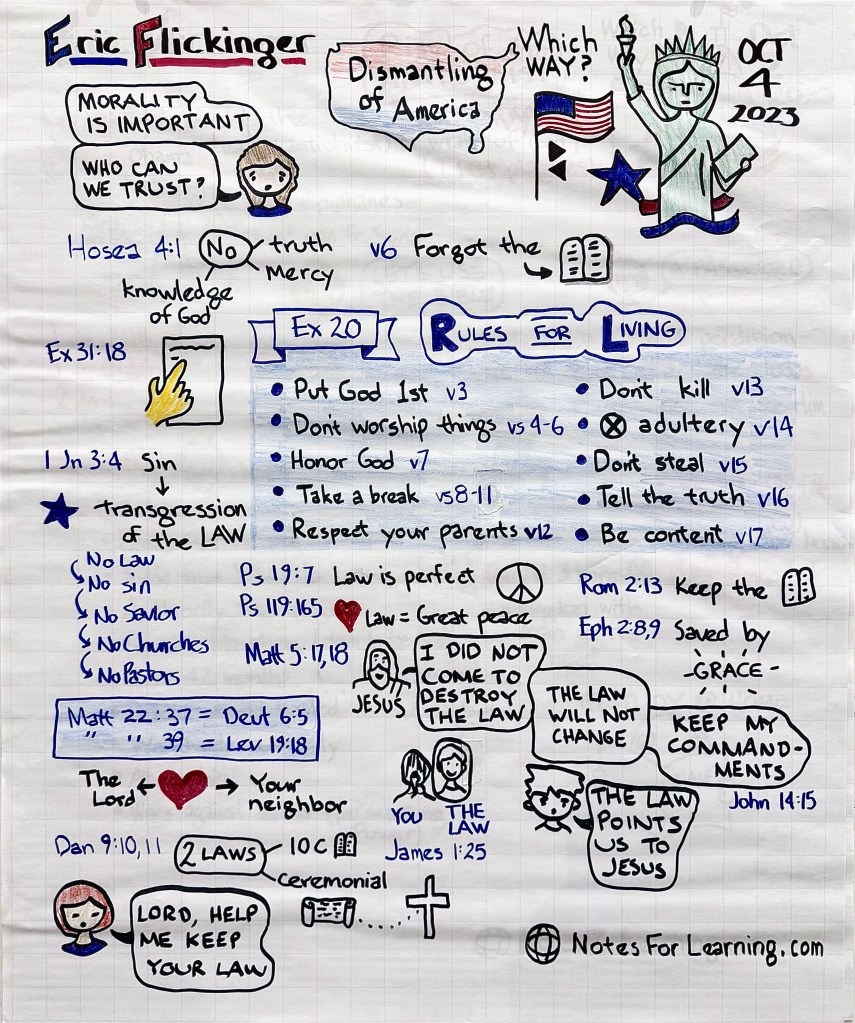 Eric Flickinger
Dismantling
of America
Which
WAY?
OCT
4
2023
MORALITY
IS IMPORTANT
WHO CAN
WE TRUST?
Hosea 4:1 No truth
Mercy
knowledge
of God
v6 Forgot the
Ex 31:18
Ex 20
RULES FOR LIVING
• Put God 1st v3
• Don't worship things vs 4-6
• Honor God v7
• Take a break vs 8-11
• Respect your parents v12
• Don't kill v13
• adultery v14
• Don't steal v15
• Tell the truth v16
• Be content v17
1 Jn 3:4 Sin
transgression
of the LAW
No Law
No sin
No Savior
No Churches
No Pastors
Ps 19:7 Law is perfect
Ps 119:165 Law = Great peace
Matt 5:17,18
JESUS
I DID NOT
COME TO
DESTROY
THE LAW
THE LAW
WILL NOT
CHANGE
Rom 2:13 Keep the
Eph 2:8,9 Saved by
-GRACE-
KEEP MY
COMMAND-
MENTS
John 14:15
Matt 22:37 = Deut 6:5
" " 39 = Lev 19:18
The
Lord
Your
neighbor
YOU THE
LAW
James 1:25
THE LAW
POINTS
US TO
JESUS
Dan 9:10,11
2 LAWS
10 C
ceremonial
LORD, HELP
ME KEEP
YOUR LAW
NotesForLearning.com